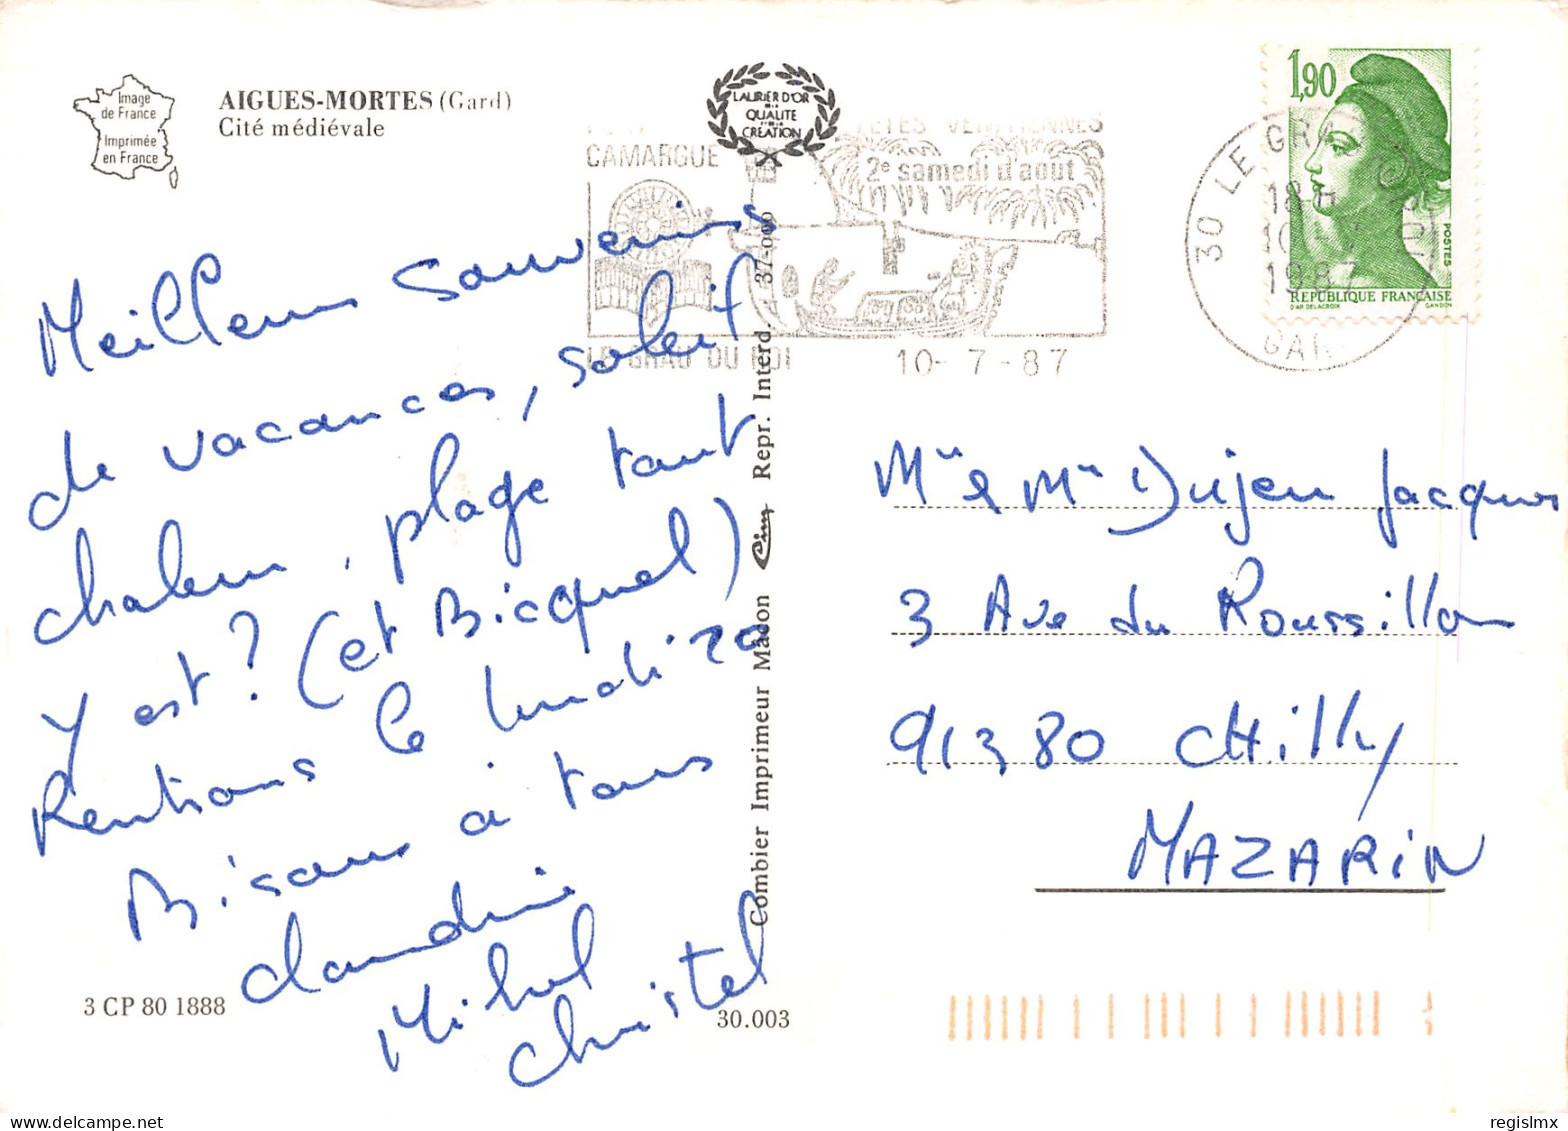 Image
de France
Imprimée
en France
AIGUES-MORTES (Gard)
Cité médiévale
LAURIER D'OR
DE LA
QUALITE
ET DE LA
CREATION
CAMARGUE
FETES VENITIENNES
2e samedi d'août
LE GRAU DU ROI
10-7-87
30 LE GRAU
18H
10-7
1987
GARD
1,90
POSTES
REPUBLIQUE FRANÇAISE
D'AP. DELACROIX
GANDON
Meilleurs souvenirs
de vacances, soleil
chaleur, plage tout
y est ? (et Bicquel)
Rentrons le lundi 20
Bisous à tous
Claudine
Michel
Christel
Combier Imprimeur Mâcon Cim Repr. Interd. 37-000
Mr & Me Dujeu Jacques
3 Ave du Roussillon
91380 CHilly
MAZARIN
3 CP 80 1888
30.003
www.delcampe.net
regislmx